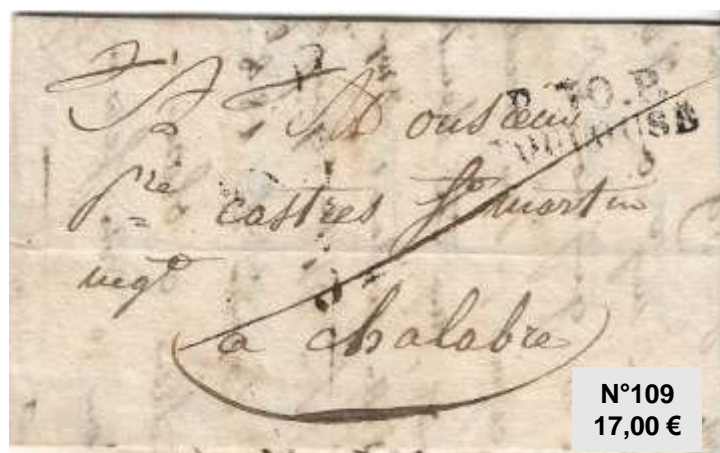 P.30.P.
TOULOUSE
Monsieur
Pre castres St martin
negt
a chalabre
N°109
17,00 €